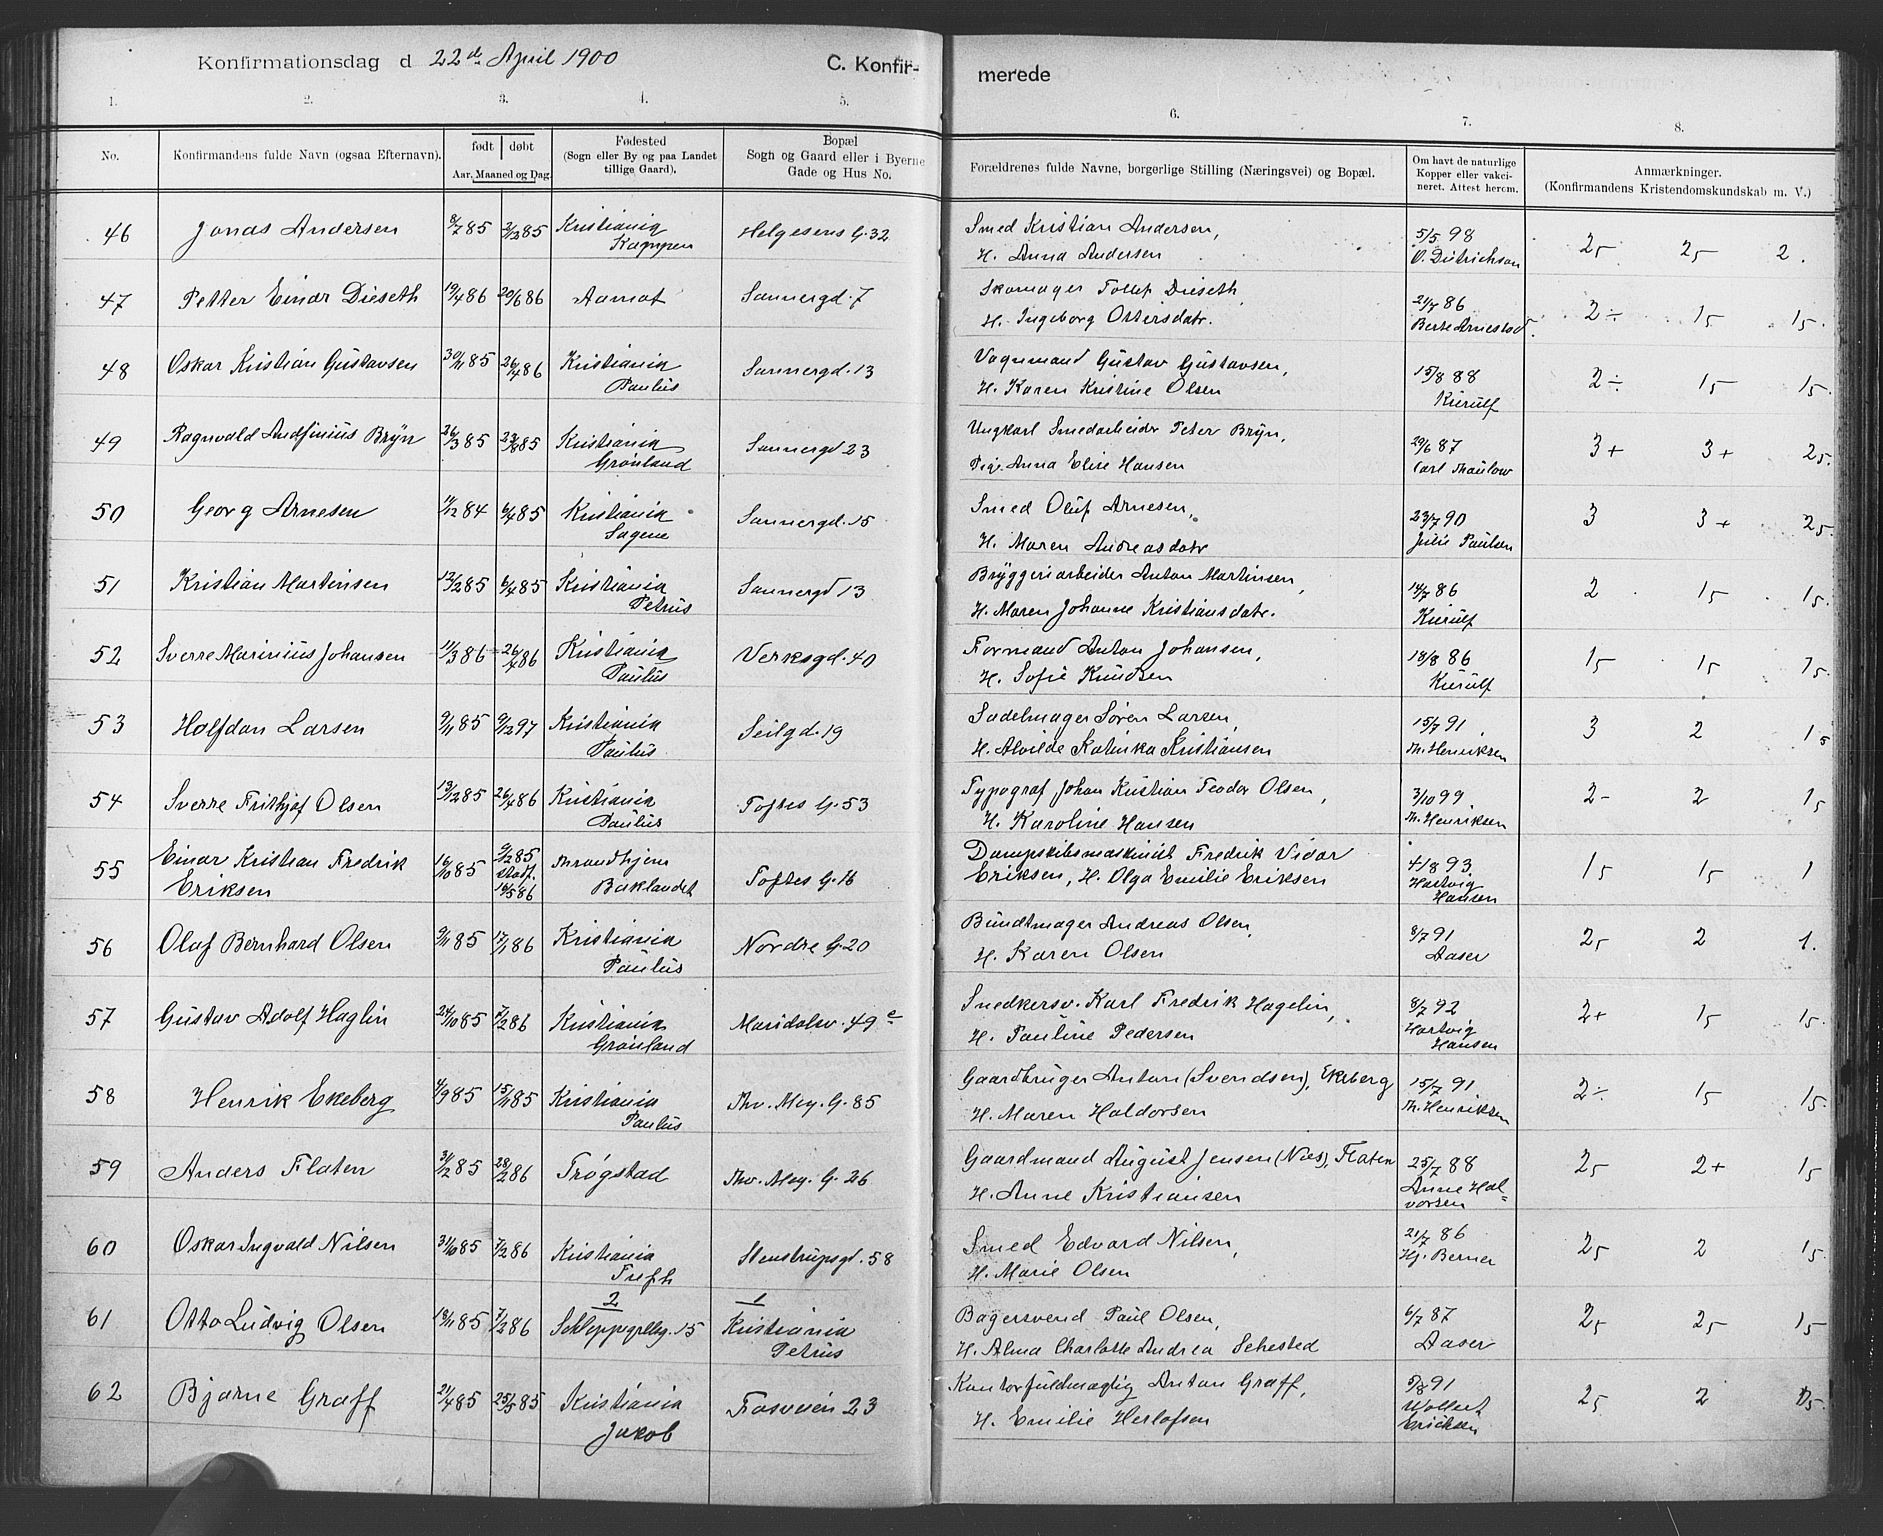 Konfirmationsdag d 22de April 1900 C. Konfir- merede
1. 2. 3. 4. 5. 6. 7. 8.
No. Konfirmandens fulde Navn (ogsaa Efternavn). født døbt Aar, Maaned og Dag.
Fødested (Sogn eller By og paa Landet tillige Gaard).
Bopæl Sogn og Gaard eller i Byerne Gade og Hus No.
Forældrenes fulde Navne, borgerlige Stilling (Næringsvei) og Bopæl.
Om havt de naturlige Kopper eller vakcineret. Attest herom.
Anmærkninger. (Konfirmandens Kristendomskundskab m. V.)
46 Jonas Andersen 8/7 85 2/12 85 Kristiania Helgesens G. 32 Smed Kristian Andersen, 5/5 98 25 25 2.
Kampen H. Anna Andersen O. Ditrichson
47 Petter Einar Dieseth 19/4 86 20/6 86 Aamot Sannergd. 7 Skomager Tollef Dieseth, 21/7 86 2÷ 15 15.
H. Ingeborg Ottersdatr. Berte Arnestad
48 Oskar Kristian Gustavsen 30/11 85 26/4 86 Kristiania Sannergd. 13 Vognmand Gustav Gustavsen, 15/8 88 2÷ 15 15.
Paulus H. Karen Kristine Olsen Kierulf
49 Ragnvald Andfinius Brÿn 26/3 85 23/8 85 Kristiania Sannergd 23 Ungkarl Smedarbeider Peter Brÿn, 29/6 87 3+ 3+ 25.
Grønland Pige Anna Elise Hansen Carl Thaulow
50 Georg Arnesen 11/12 84 6/4 85 Kristiania Sannergd. 15 Smed Oluf Arnesen, 23/7 90 3 3+ 25.
Sagene H. Maren Andreasdatr Julie Paulsen
51 Kristian Martinsen 13/2 85 6/4 85 Kristiania Sannergd 13 Brÿggeriarbeider Anton Martinsen, 14/7 86 2 15 15.
Petrus H. Maren Johanne Kristiansdatr. Kierulf
52 Sverre Marinius Johansen 11/3 86 26/4 86 Kristiania Verksgd. 40 Formand Anton Johansen, 18/8 86 15 15 15
Paulus H. Sofie Knudsen Kierulf
53 Halfdan Larsen 9/11 85 9/12 97 Kristiania Seilgd. 19 Sadelmager Søren Larsen, 15/7 91 3 2 15
Paulus H. Alvilde Katinka Kristiansen Th. Henriksen
54 Sverre Frithjof Olsen 13/12 85 26/4 86 Kristiania Toftes G. 53 Typograf Johan Kristian Teodor Olsen, 3/10 99 2- 2 15
Paulus H. Karoline Hansen Th. Henriksen
55 Einar Kristian Fredrik 16/10 85 9/12 85 Throndhjem Toftes G. 16 Dampskibsmaskinist Fredrik Vidar 4/8 93 15 15 1
Eriksen stadf. 18/5 86 Baklandet Eriksen, H. Olga Emilie Eriksen Hartvig Hansen
56 Olaf Bernhard Olsen 9/11 85 17/1 86 Kristiania Nordre G. 20 Bundtmager Andreas Olsen, 8/7 91 25 2 1.
Paulus H. Karen Olsen Aaser
57 Gustav Adolf Haglin 24/10 85 7/2 86 Kristiania Maridalsv. 49 c Snedkersv. Karl Fredrik Hagelin, 8/7 92 2+ 15 15.
Grønland H. Pauline Pedersen Hartvig Hansen
58 Henrik Ekeberg 4/9 85 15/11 85 Kristiania Thv. Mey. G. 85 Gaardbruger Anton (Svendsen), Ekeberg 15/7 91 2÷ 15 15.
Paulus H. Maren Haldorsen Th. Henriksen
59 Anders Flaten 31/12 85 28/2 86 Trøgstad Thv. Mey. G. 26 Gaardmand August Jensen (Næs), Flaten 25/7 88 25 2+ 15
H. Anne Kristiansen Anne Hal=vorsen
60 Oskar Ingvald Nilsen 31/10 85 7/2 86 Kristiania Stenstrupsgd. 58 Smed Edvard Nilsen, 21/7 86 25 2 15
Trefh H. Marie Olsen Hj. Berner
2 1
61 Otto Ludvig Olsen 18/11 85 7/2 86 Schleppegrellsg. 15 Kristiania Bagersvend Paul Olsen, 6/7 87 25 25 15
Petrus H. Alma Charlotte Andrea Sehested Aaser
62 Bjarne Graff 21/4 85 25/5 85 Kristiania Fosveien 23 Kontorfuldmægtig Anton Graff, 5/8 91 25 2 15.
Jakob H. Emilie Herlofsen Wollert Erichsen